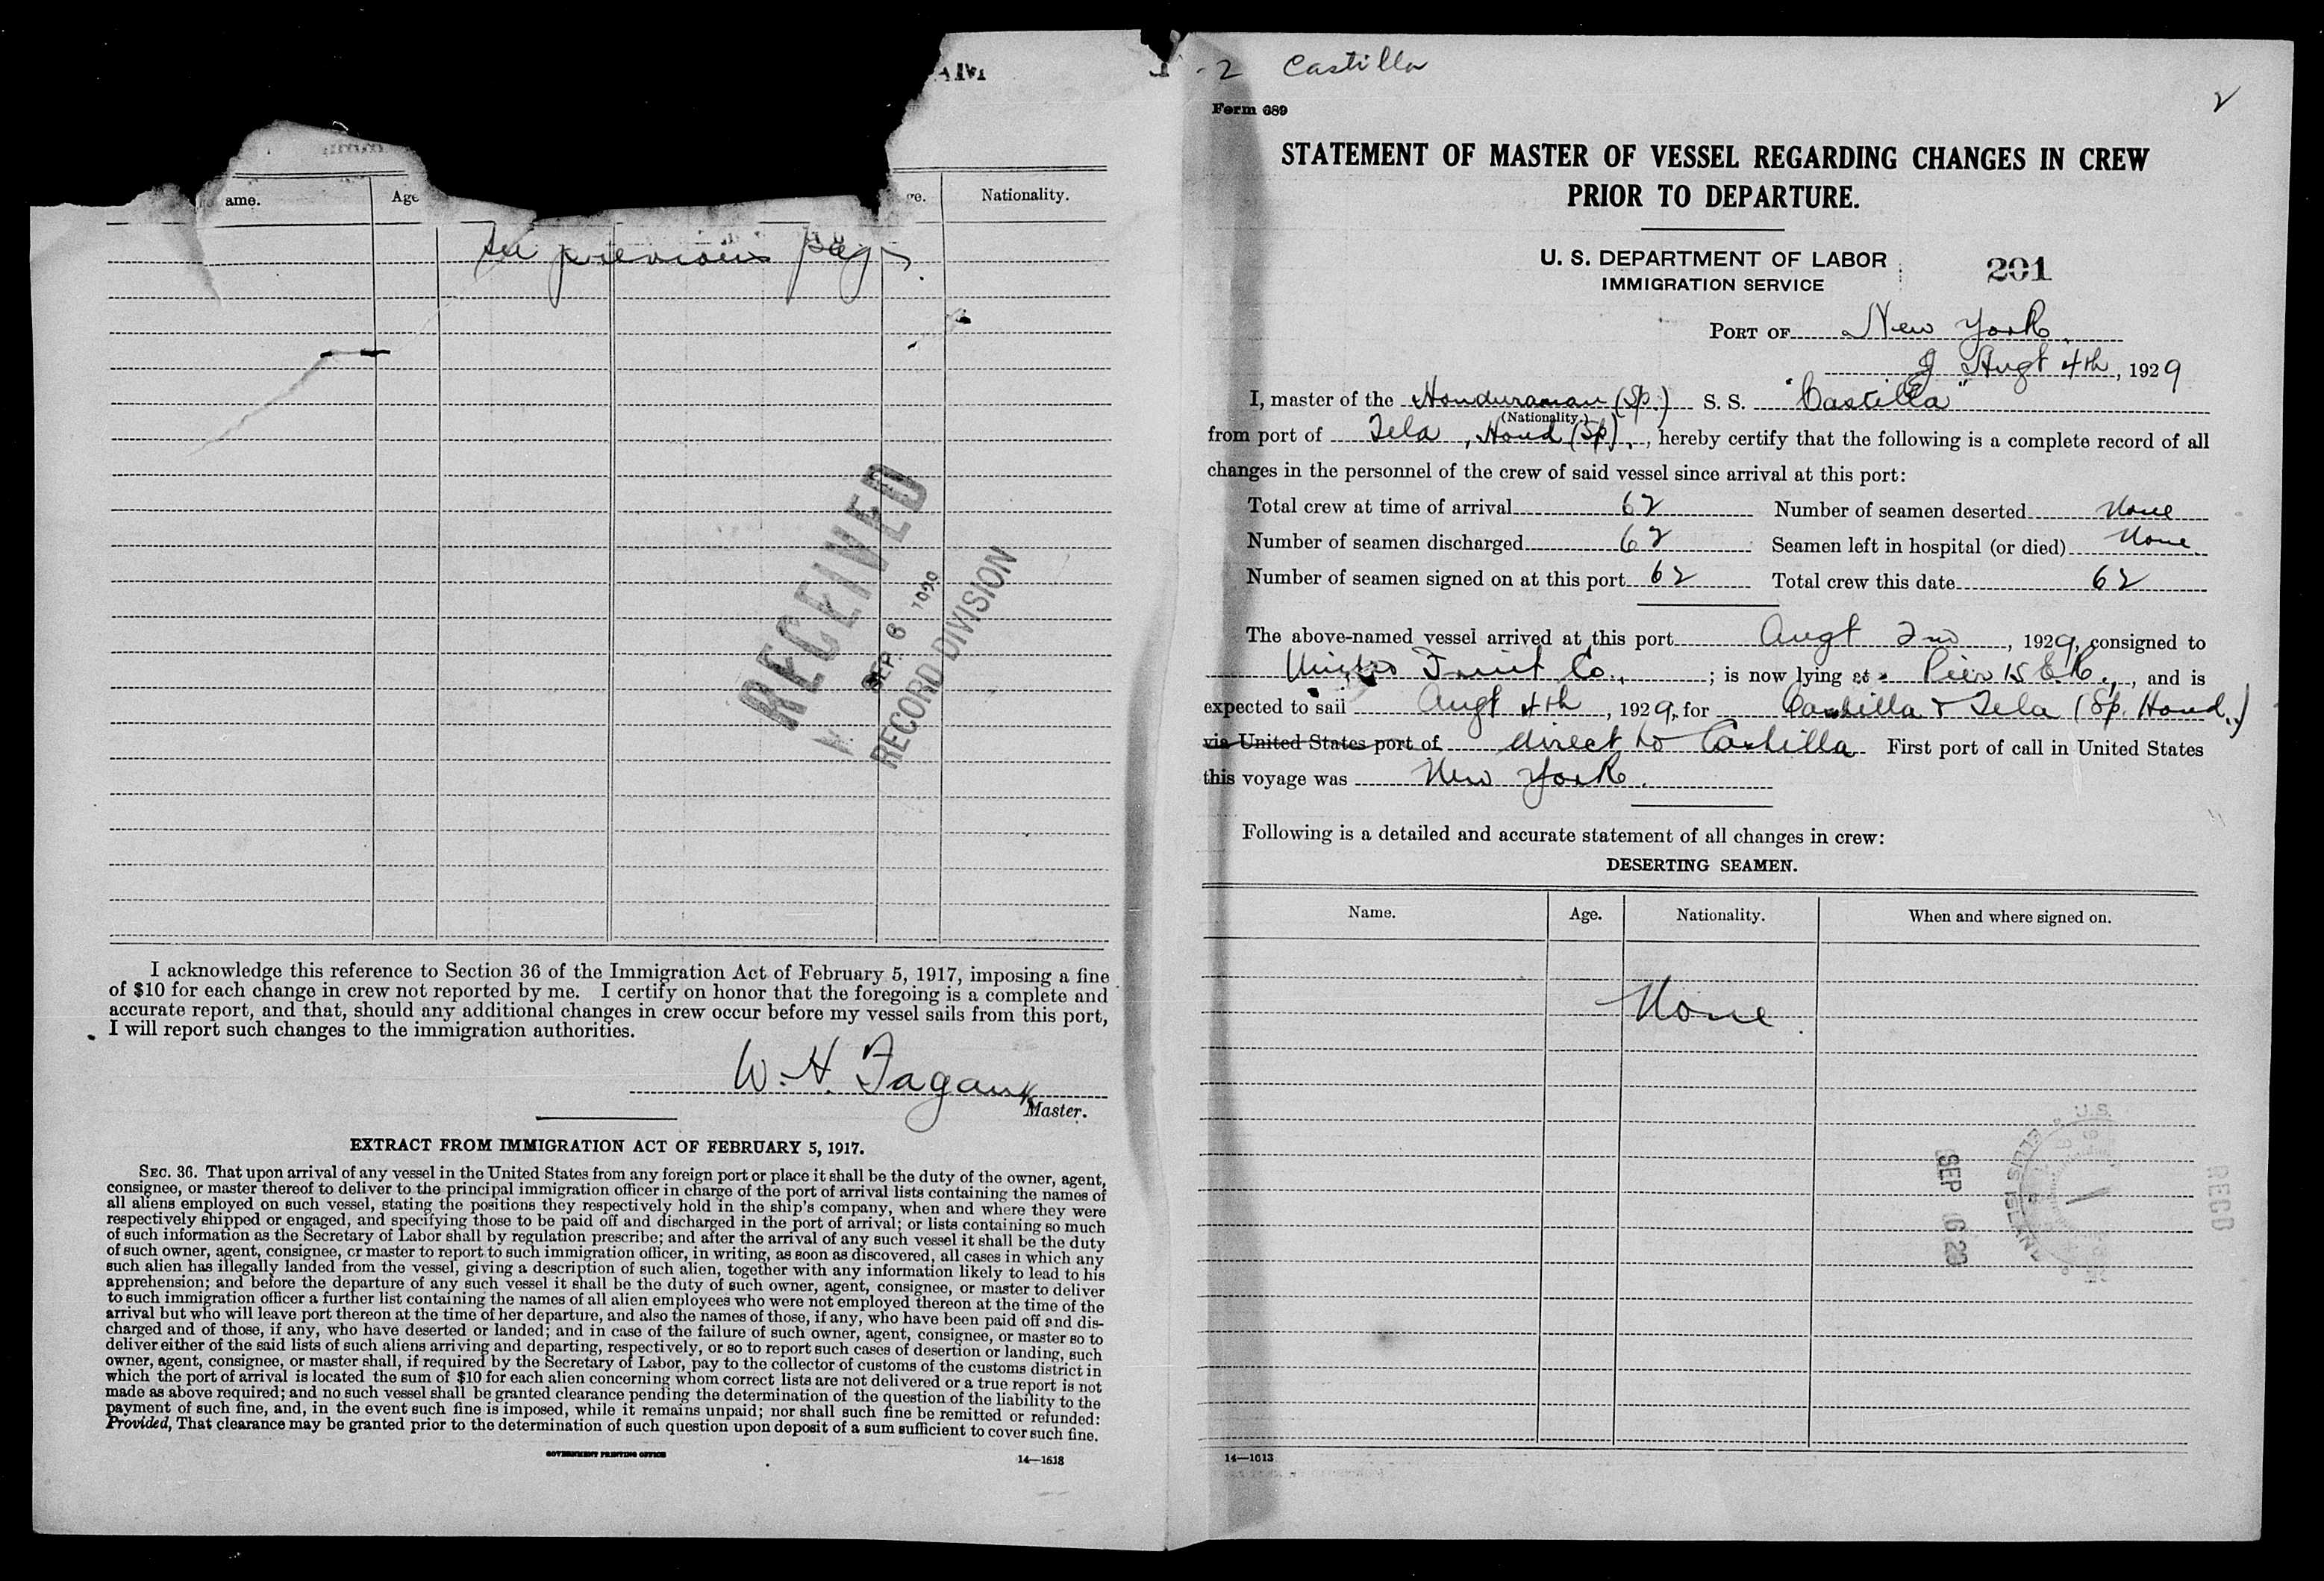 ame.
Age
ge.
Nationality.
previous page
RECEIVED
SEP 6
RECORD DIVISION
I acknowledge this reference to Section 36 of the Immigration Act of February 5, 1917, imposing a fine
of $10 for each change in crew not reported by me. I certify on honor that the foregoing is a complete and
accurate report, and that, should any additional changes in crew occur before my vessel sails from this port,
I will report such changes to the immigration authorities.
W. H. Fagan
Master.
EXTRACT FROM IMMIGRATION ACT OF FEBRUARY 5, 1917.
SEC. 36. That upon arrival of any vessel in the United States from any foreign port or place it shall be the duty of the owner, agent,
consignee, or master thereof to deliver to the principal immigration officer in charge of the port of arrival lists containing the names of
all aliens employed on such vessel, stating the positions they respectively hold in the ship's company, when and where they were
respectively shipped or engaged, and specifying those to be paid off and discharged in the port of arrival; or lists containing so much
of such information as the Secretary of Labor shall by regulation prescribe; and after the arrival of any such vessel it shall be the duty
of such owner, agent, consignee, or master to report to such immigration officer, in writing, as soon as discovered, all cases in which any
such alien has illegally landed from the vessel, giving a description of such alien, together with any information likely to lead to his
apprehension; and before the departure of any such vessel it shall be the duty of such owner, agent, consignee, or master to deliver
to such immigration officer a further list containing the names of all alien employees who were not employed thereon at the time of the
arrival but who will leave port thereon at the time of her departure, and also the names of those, if any, who have been paid off and dis-
charged and of those, if any, who have deserted or landed; and in case of the failure of such owner, agent, consignee, or master so to
deliver either of the said lists of such aliens arriving and departing, respectively, or so to report such cases of desertion or landing, such
owner, agent, consignee, or master shall, if required by the Secretary of Labor, pay to the collector of customs of the customs district in
which the port of arrival is located the sum of $10 for each alien concerning whom correct lists are not delivered or a true report is not
made as above required; and no such vessel shall be granted clearance pending the determination of the question of the liability to the
payment of such fine, and, in the event such fine is imposed, while it remains unpaid; nor shall such fine be remitted or refunded:
Provided, That clearance may be granted prior to the determination of such question upon deposit of a sum sufficient to cover such fine.
GOVERNMENT PRINTING OFFICE
14—1613
2 Castilla
2
Form 689
STATEMENT OF MASTER OF VESSEL REGARDING CHANGES IN CREW
PRIOR TO DEPARTURE.
U. S. DEPARTMENT OF LABOR
201
IMMIGRATION SERVICE
PORT OF New York
Augt 4th, 1929
I, master of the Honduranean (Sp.) S. S. "Castilla"
(Nationality.)
from port of Tela, Hond (Sp)., hereby certify that the following is a complete record of all
changes in the personnel of the crew of said vessel since arrival at this port:
Total crew at time of arrival 62 Number of seamen deserted None
Number of seamen discharged 62 Seamen left in hospital (or died) None
Number of seamen signed on at this port 62 Total crew this date 62
The above-named vessel arrived at this port Augt 2nd, 1929, consigned to
United Fruit Co.; is now lying at Pier 15 E.R., and is
expected to sail Augt 4th, 1929, for Castilla & Tela (Sp. Hond.)
via United States port of direct to Castilla First port of call in United States
this voyage was New York.
Following is a detailed and accurate statement of all changes in crew:
DESERTING SEAMEN.
Name. Age. Nationality. When and where signed on.
None
U.S.
ELLIS ISLAND
SEP 6 29
RECD
14—1613